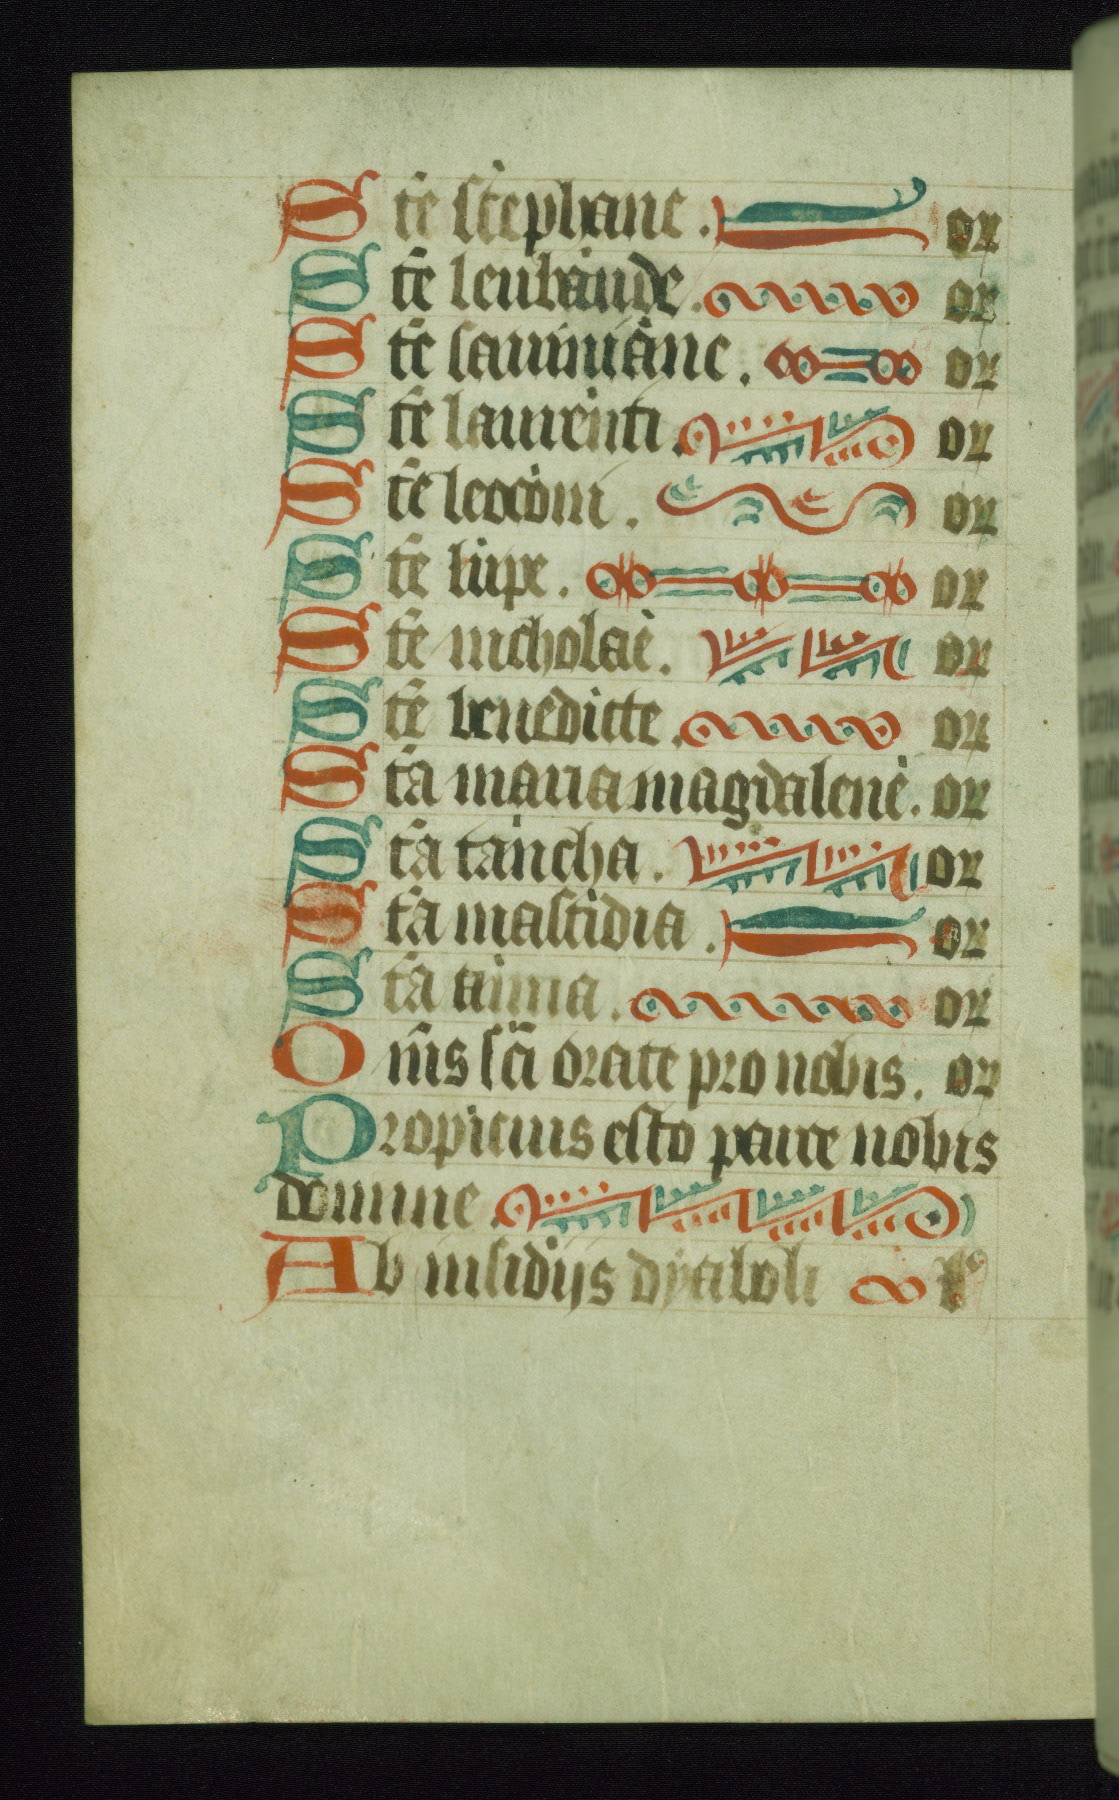 Ste stephane. or
Ste leubaude. or
Ste sauiniane. or
Ste laurenti. or
Ste leocom. or
Ste lupe. or
Ste nicholae. or
Ste benedicte. or
Sta maria magdalene. or
Sta tancha. or
Sta mastidia. or
Sta anna. or
Oms sci orate pro nobis. or
Propicius esto parce nobis
domine.
Ab insidijs dyaboli